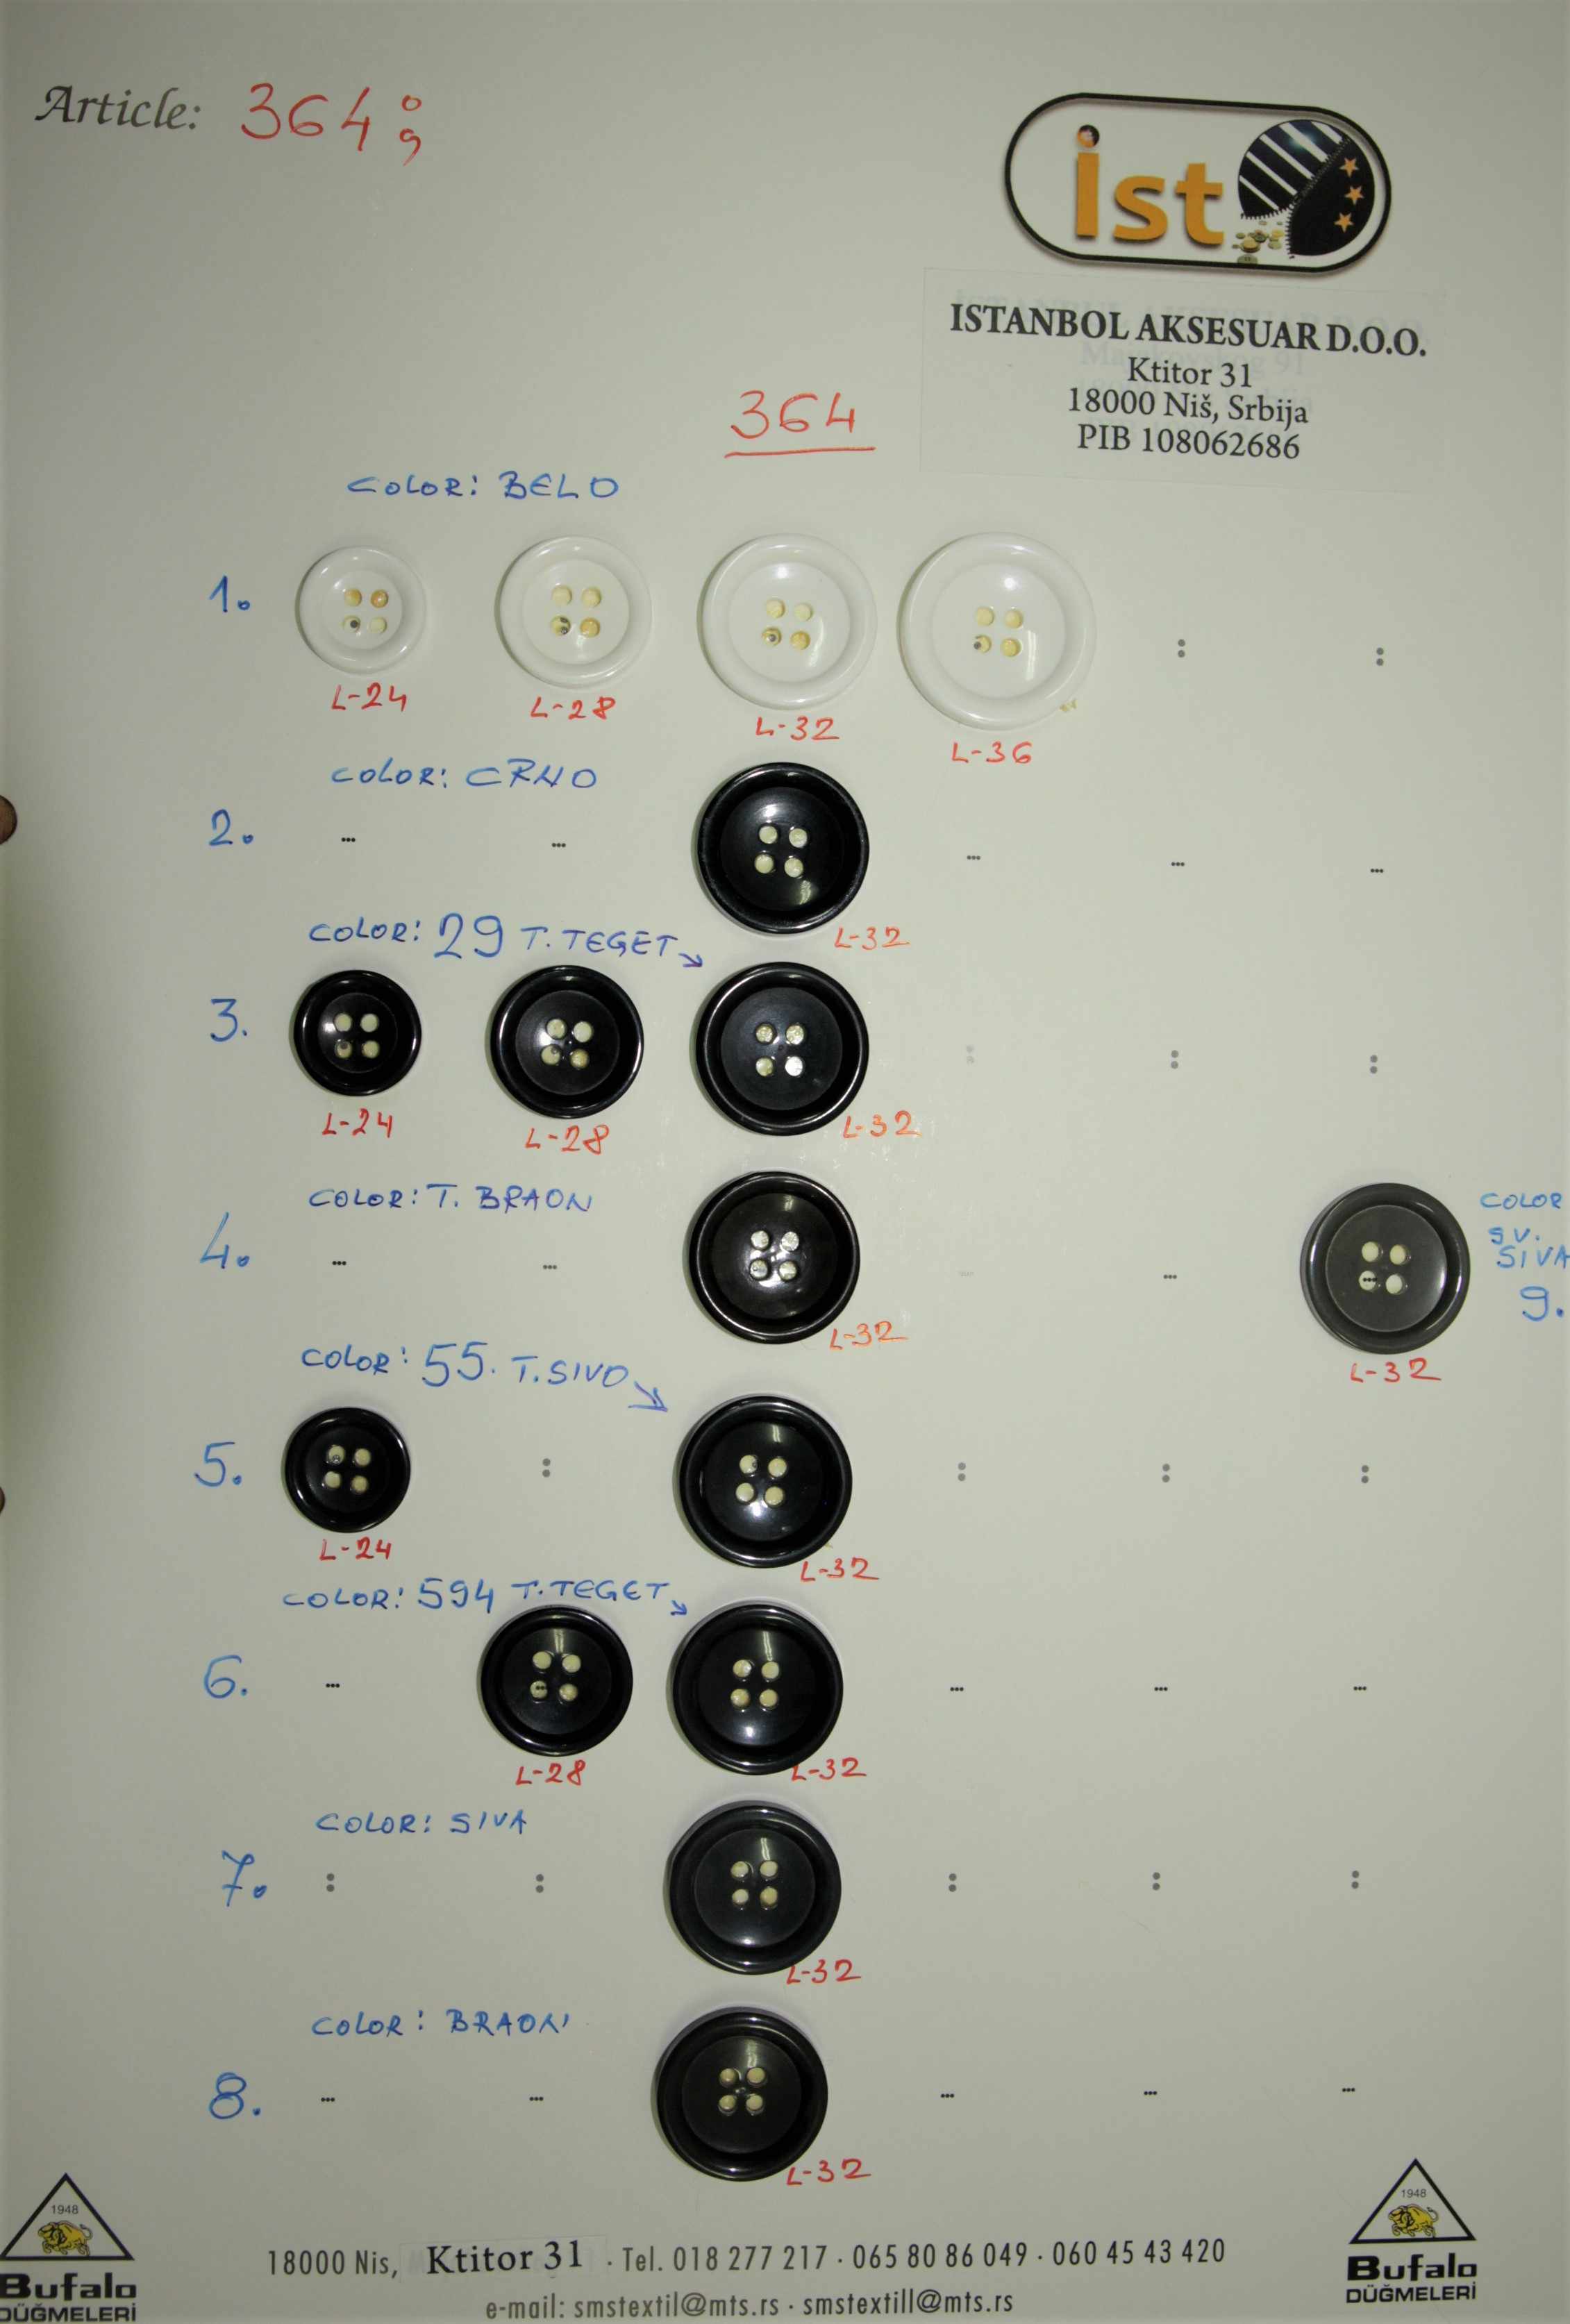 Article: 364;
ist
ISTANBOL AKSESUAR D.O.O.
Ktitor 31
18000 Niš, Srbija
PIB 108062686
364
COLOR: BELO
1.
L-24
L-28
L-32
L-36
COLOR: CRNO
2.
L-32
COLOR: 29 T. TEGET
3.
L-24
L-28
L-32
COLOR: T. BRAON
4.
L-32
COLOR
SV.
SIVA
9.
L-32
COLOR: 55. T. SIVO
5.
L-24
L-32
COLOR: 594 T. TEGET
6.
L-28
L-32
COLOR: SIVA
7.
L-32
COLOR: BRAON
8.
L-32
1948
Bufalo
DÜĞMELERİ
18000 Nis, Ktitor 31 · Tel. 018 277 217 · 065 80 86 049 · 060 45 43 420
e-mail: smstextil@mts.rs · smstextill@mts.rs
1948
Bufalo
DÜĞMELERİ